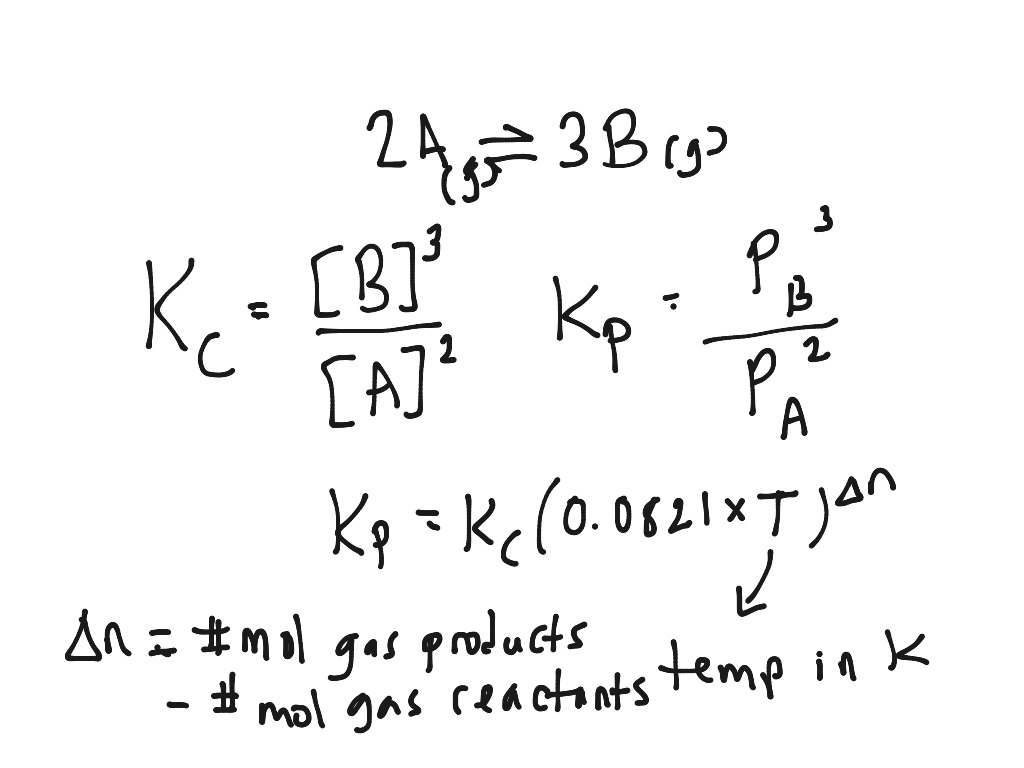 2A(g) ⇌ 3B(g)
K_C = [B]^3 / [A]^2    K_P = P_B^3 / P_A^2
K_P = K_C (0.0821 × T)^Δn
Δn = # mol gas products
- # mol gas reactants
temp in K